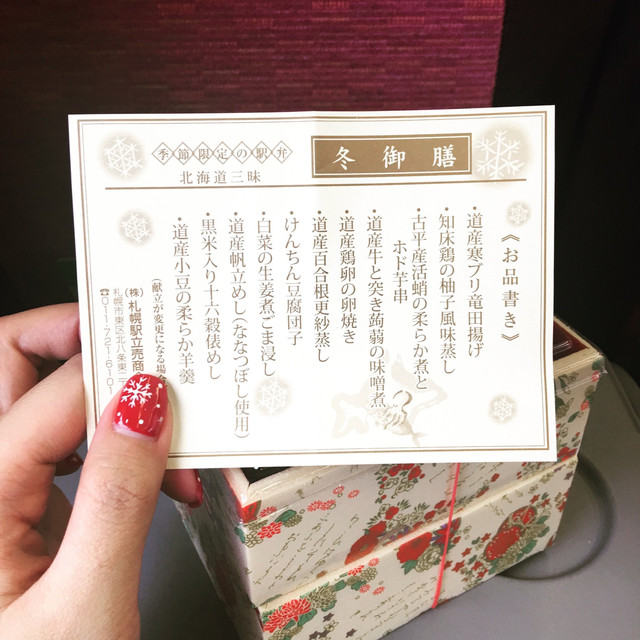 季節限定の駅弁
北海道三昧
冬御膳
《お品書き》
・道産寒ブリ竜田揚げ
・知床鶏の柚子風味蒸し
・古平産活蛸の柔らか煮と
ホド芋串
・道産牛と突き蒟蒻の味噌煮
・道産鶏卵の卵焼き
・道産百合根更紗蒸し
・けんちん豆腐団子
・白菜の生姜煮ごま浸し
・道産帆立めし(ななつぼし使用)
・黒米入り十六穀俵めし
・道産小豆の柔らか羊羹
(献立が変更になる場
(株)札幌駅立売商
札幌市東区北八条東二
☎011-721-6101